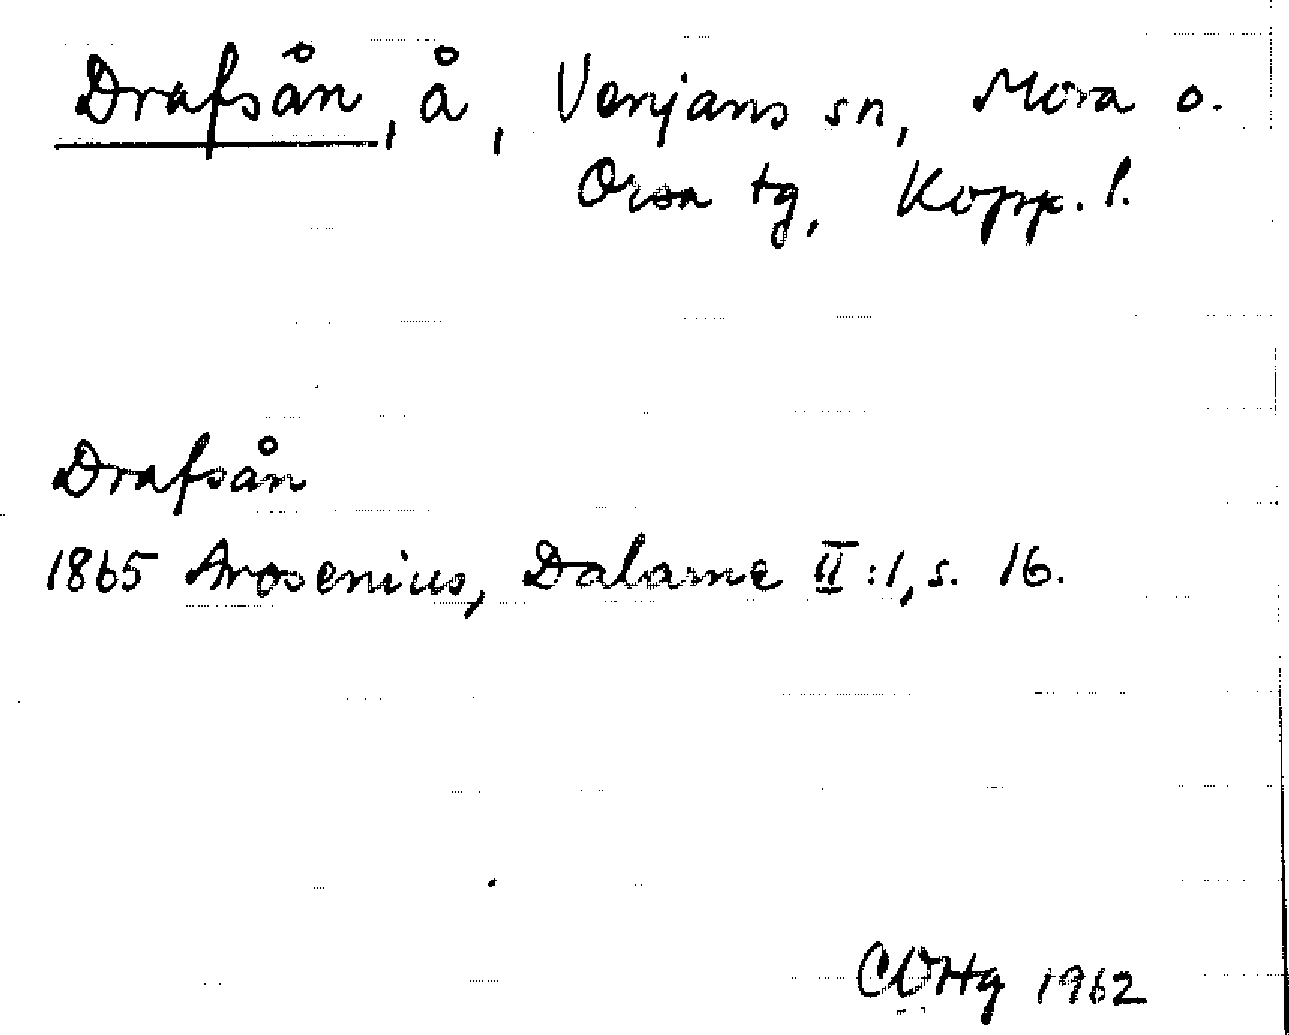 Drafsån, å, Venjans sn, Mora o.
Orsa tg, Kopp. l.
Drafsån
1865 Arosenius, Dalarne II:1, s. 16.
CWHg 1962